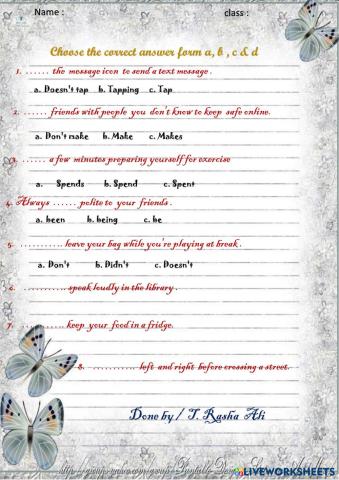 Name :
class :
Choose the correct answer form a, b , c & d
1. . . . . . . the message icon to send a text message .
a. Doesn't tap b. Tapping c. Tap
2. . . . . . . friends with people you don't know to keep safe online.
a. Don't make b. Make c. Makes
3. . . . . . . a few minutes preparing yourself for exercise
a. Spends b. Spend c. Spent
4. Always . . . . . . polite to your friends .
a. been b. being c. be
5. ........... leave your bag while you're playing at break .
a. Don't b. Didn't c. Doesn't
6. ........... speak loudly in the library .
7. ........... keep your food in a fridge.
8. ........... left and right before crossing a street.
Done by / T. Rasha Ali
LIVEWORKSHEETS